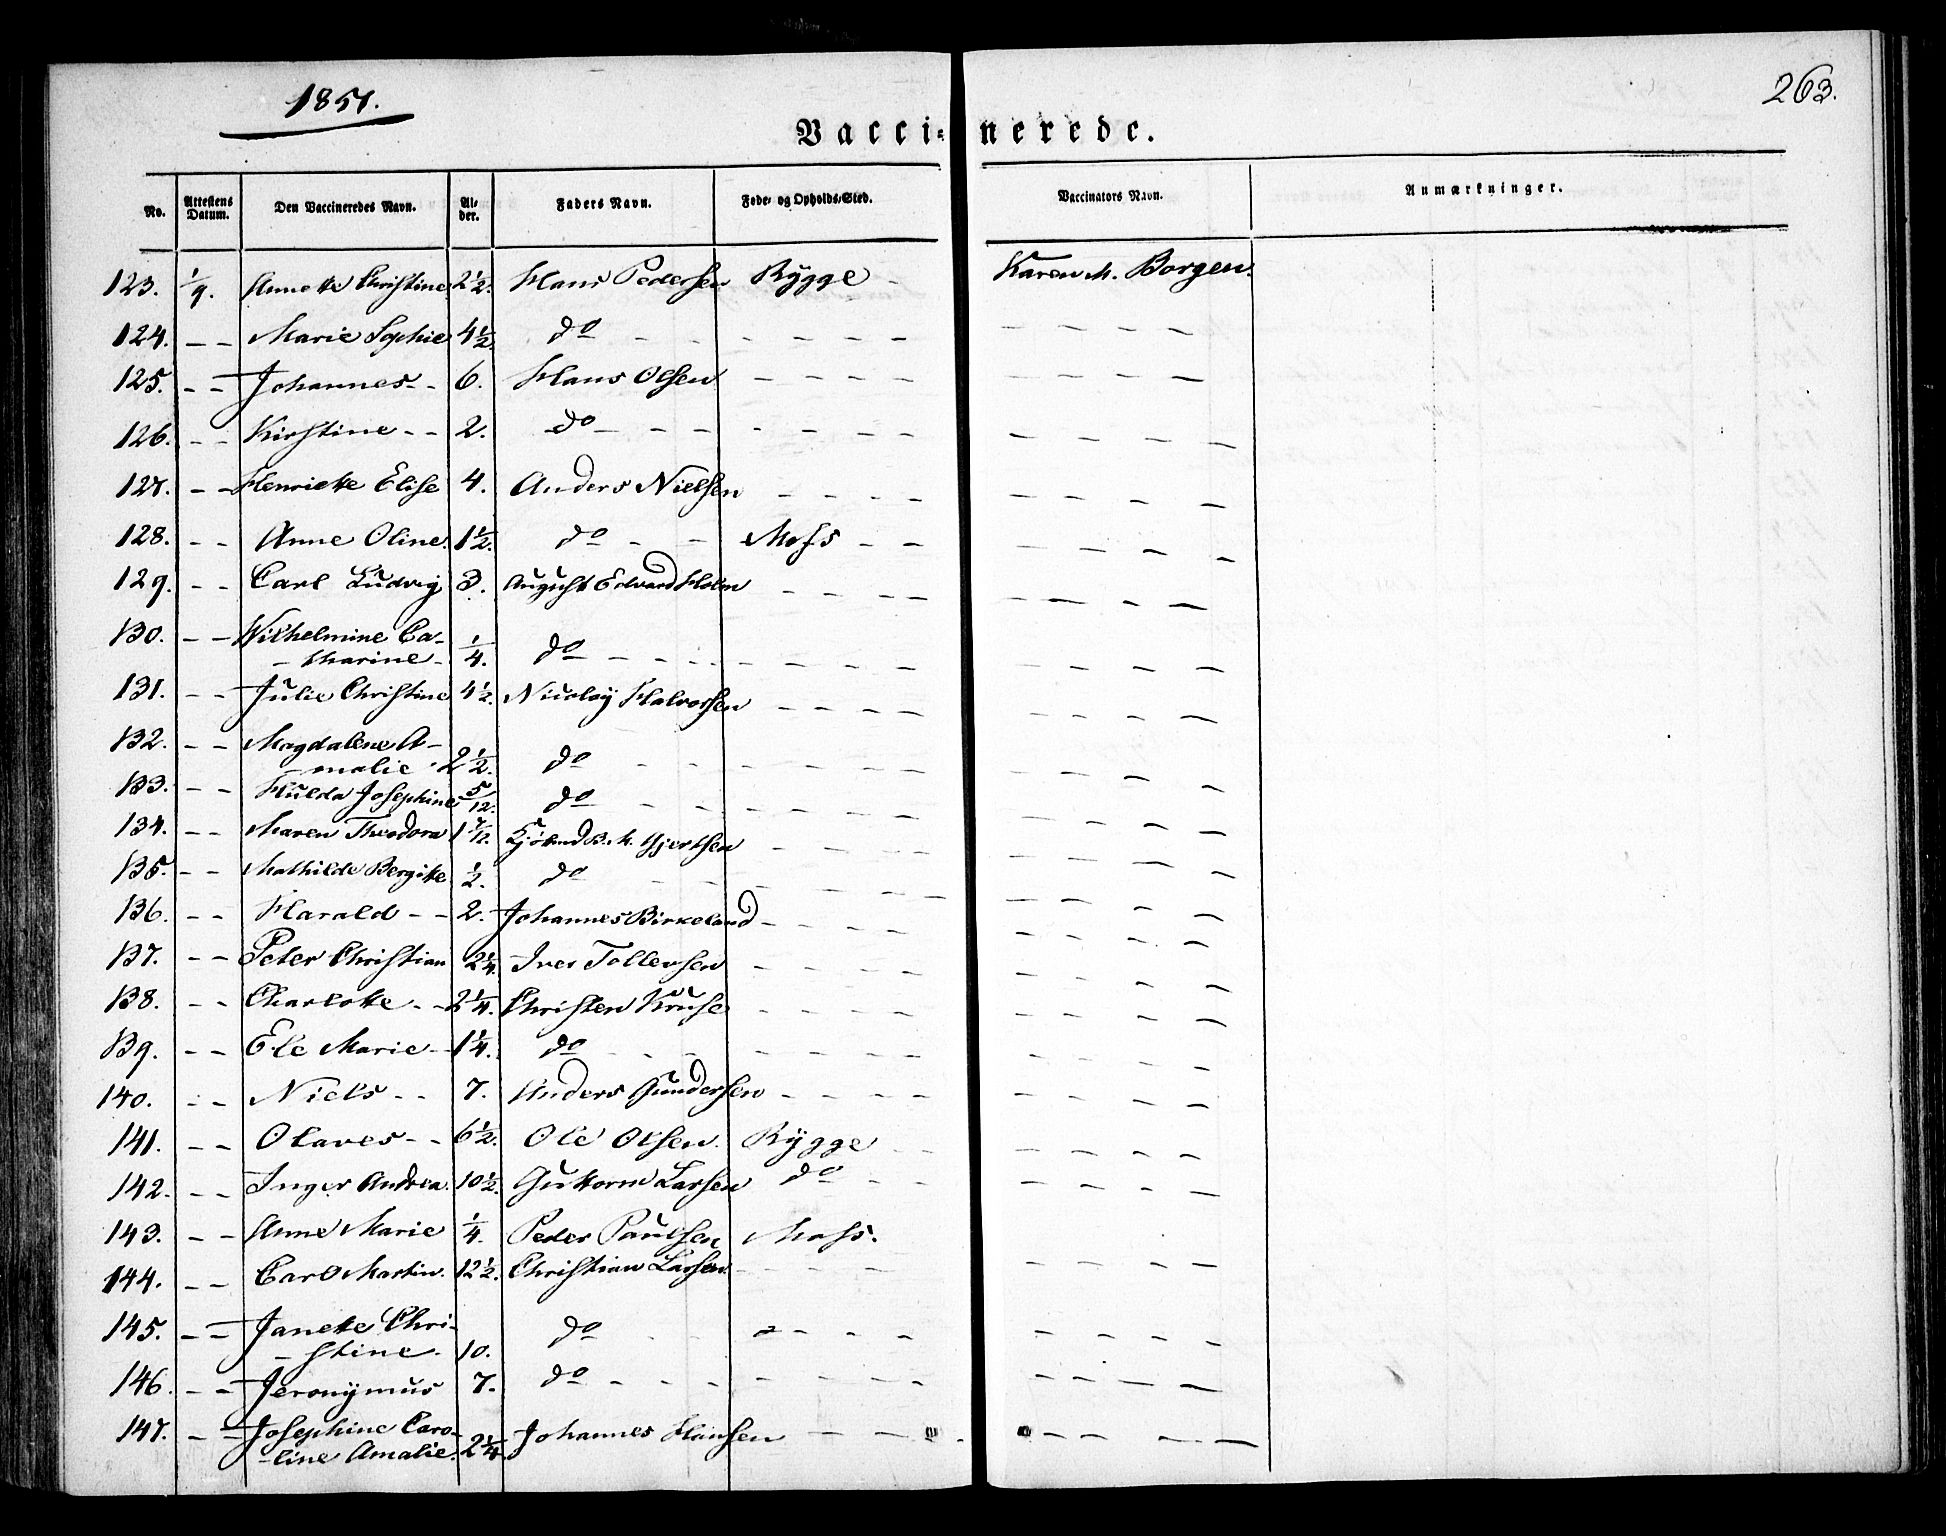 1851.
263.
Vacci=nerede.
No. Attestens Datum. Den Vaccineredes Navn. Al=der. Faders Navn. Føde= og Opholds=Sted. Vaccinators Navn. Anmærkninger.
123. 1/9. Annette Christine 2 1/2. Hans Pedersen Rygge - Karen M. Borgen.
124. - - Marie Sophie 4 1/2 do - - - - - - - - - - -
125. - - Johannes - - 6. Hans Olsen - - - - - - - - -
126. - - Kirstine - - 2. do - - - - - - - - - - -
127. - - Henriette Elise 4. Anders Nielsen - - - - - - - -
128. - - Anne Oline. 1 1/2. do - - Moss - - - - - - -
129. - - Carl Ludvig 3. August Edvard Holm - - - - - - - - -
130. - - Wilhelmine Ca-
- tharine - 1/4. do - - - - - - - - - - - -
131. - - Julie Christine 4 1/2. Nicolay Halvorsen - - - - - - - -
132. - - Magdalene A-
malie - 2 1/2. do - - - - - - - - - - -
133. - - Hulda Josephine 5/12. do - - - - - - - - - - -
134. - - Maren Theodora 1 7/12. B. M. Gjertsen - - - - - - - -
135. - - Mathilde Bergitte 1/2. do - - - - - - - - - -
136. - - Harald - - 2. Johannes Birkeland - - - - - - - - -
137. - - Peter Christian 2 1/4. Iver Tollevsen - - - - - - - - -
138. - - Charlotte - - 2 1/4. Christen Kruse - - - - - - - - -
139. - - Ele Marie - 1 1/4. do - - - - - - - - - - -
140. - - Niels - - 7. Anders Gundersen - - - - - - - -
141. - - Olaves - - 6 1/2. Ole Olsen. Rygge - - - - - - -
142. - - Inger Andrea. 10 1/2. Guttorm Larsen do - - - - - - -
143. - - Anne Marie 1/4. Peder Paulsen Moss.
144. - - Carl Martin. 12 1/2. Christian Larsen. - - - - - - - -
145. - - Janette Chri-
- stine. 10. do - - - - - - - - - - -
146. - - Jeronymus 7. do - - - - - - - - - - -
147. - - Josephine Caro-
- line Amalie. 2 1/4. Johannes Hansen - - - - - - - -